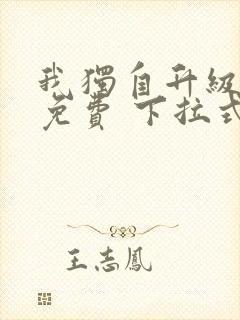 我獨自升級
免費 下拉式
王志鳳